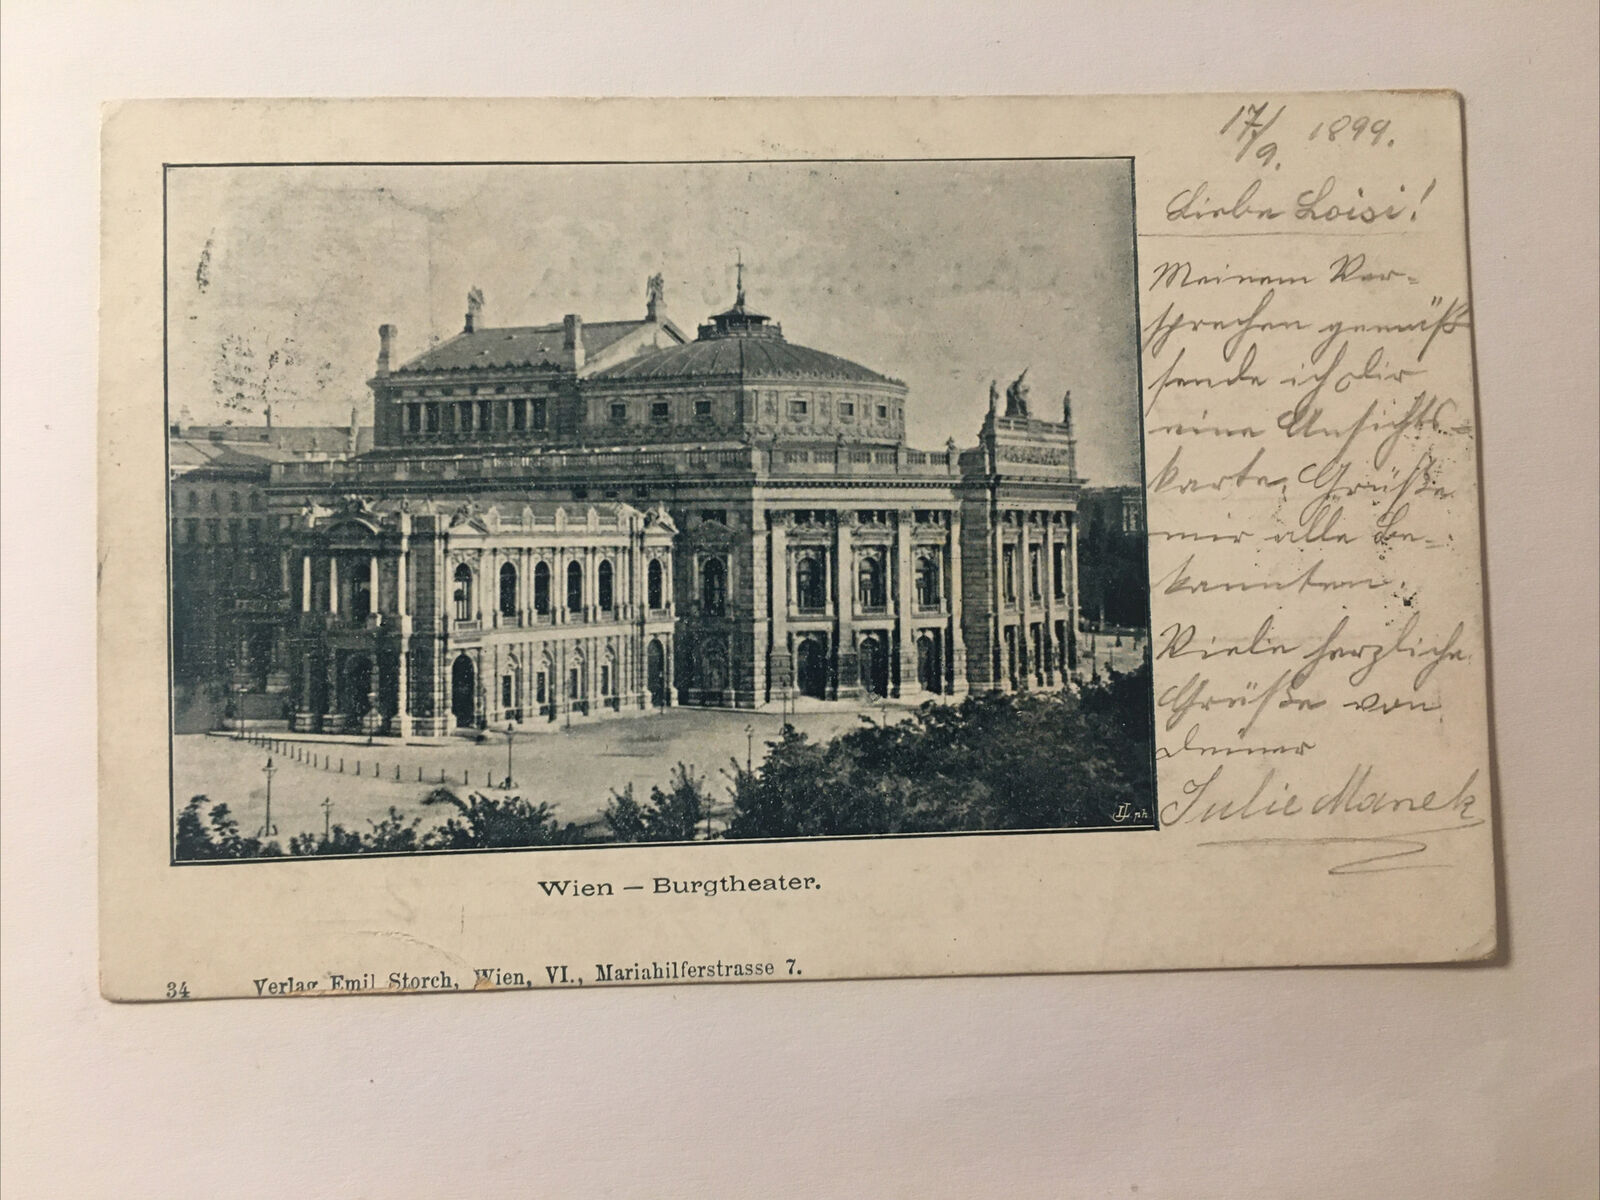 17/9. 1899.
Liebe Loisi!
Meinem Ver-
sprechen gemäß
sende ich Dir
eine Ansichts-
karte. Grüße
mir alle Be-
kannten.
Viele herzliche
Grüße von
Deiner
Julie Manek
JL ph.
Wien — Burgtheater.
34 Verlag Emil Storch, Wien, VI., Mariahilferstrasse 7.